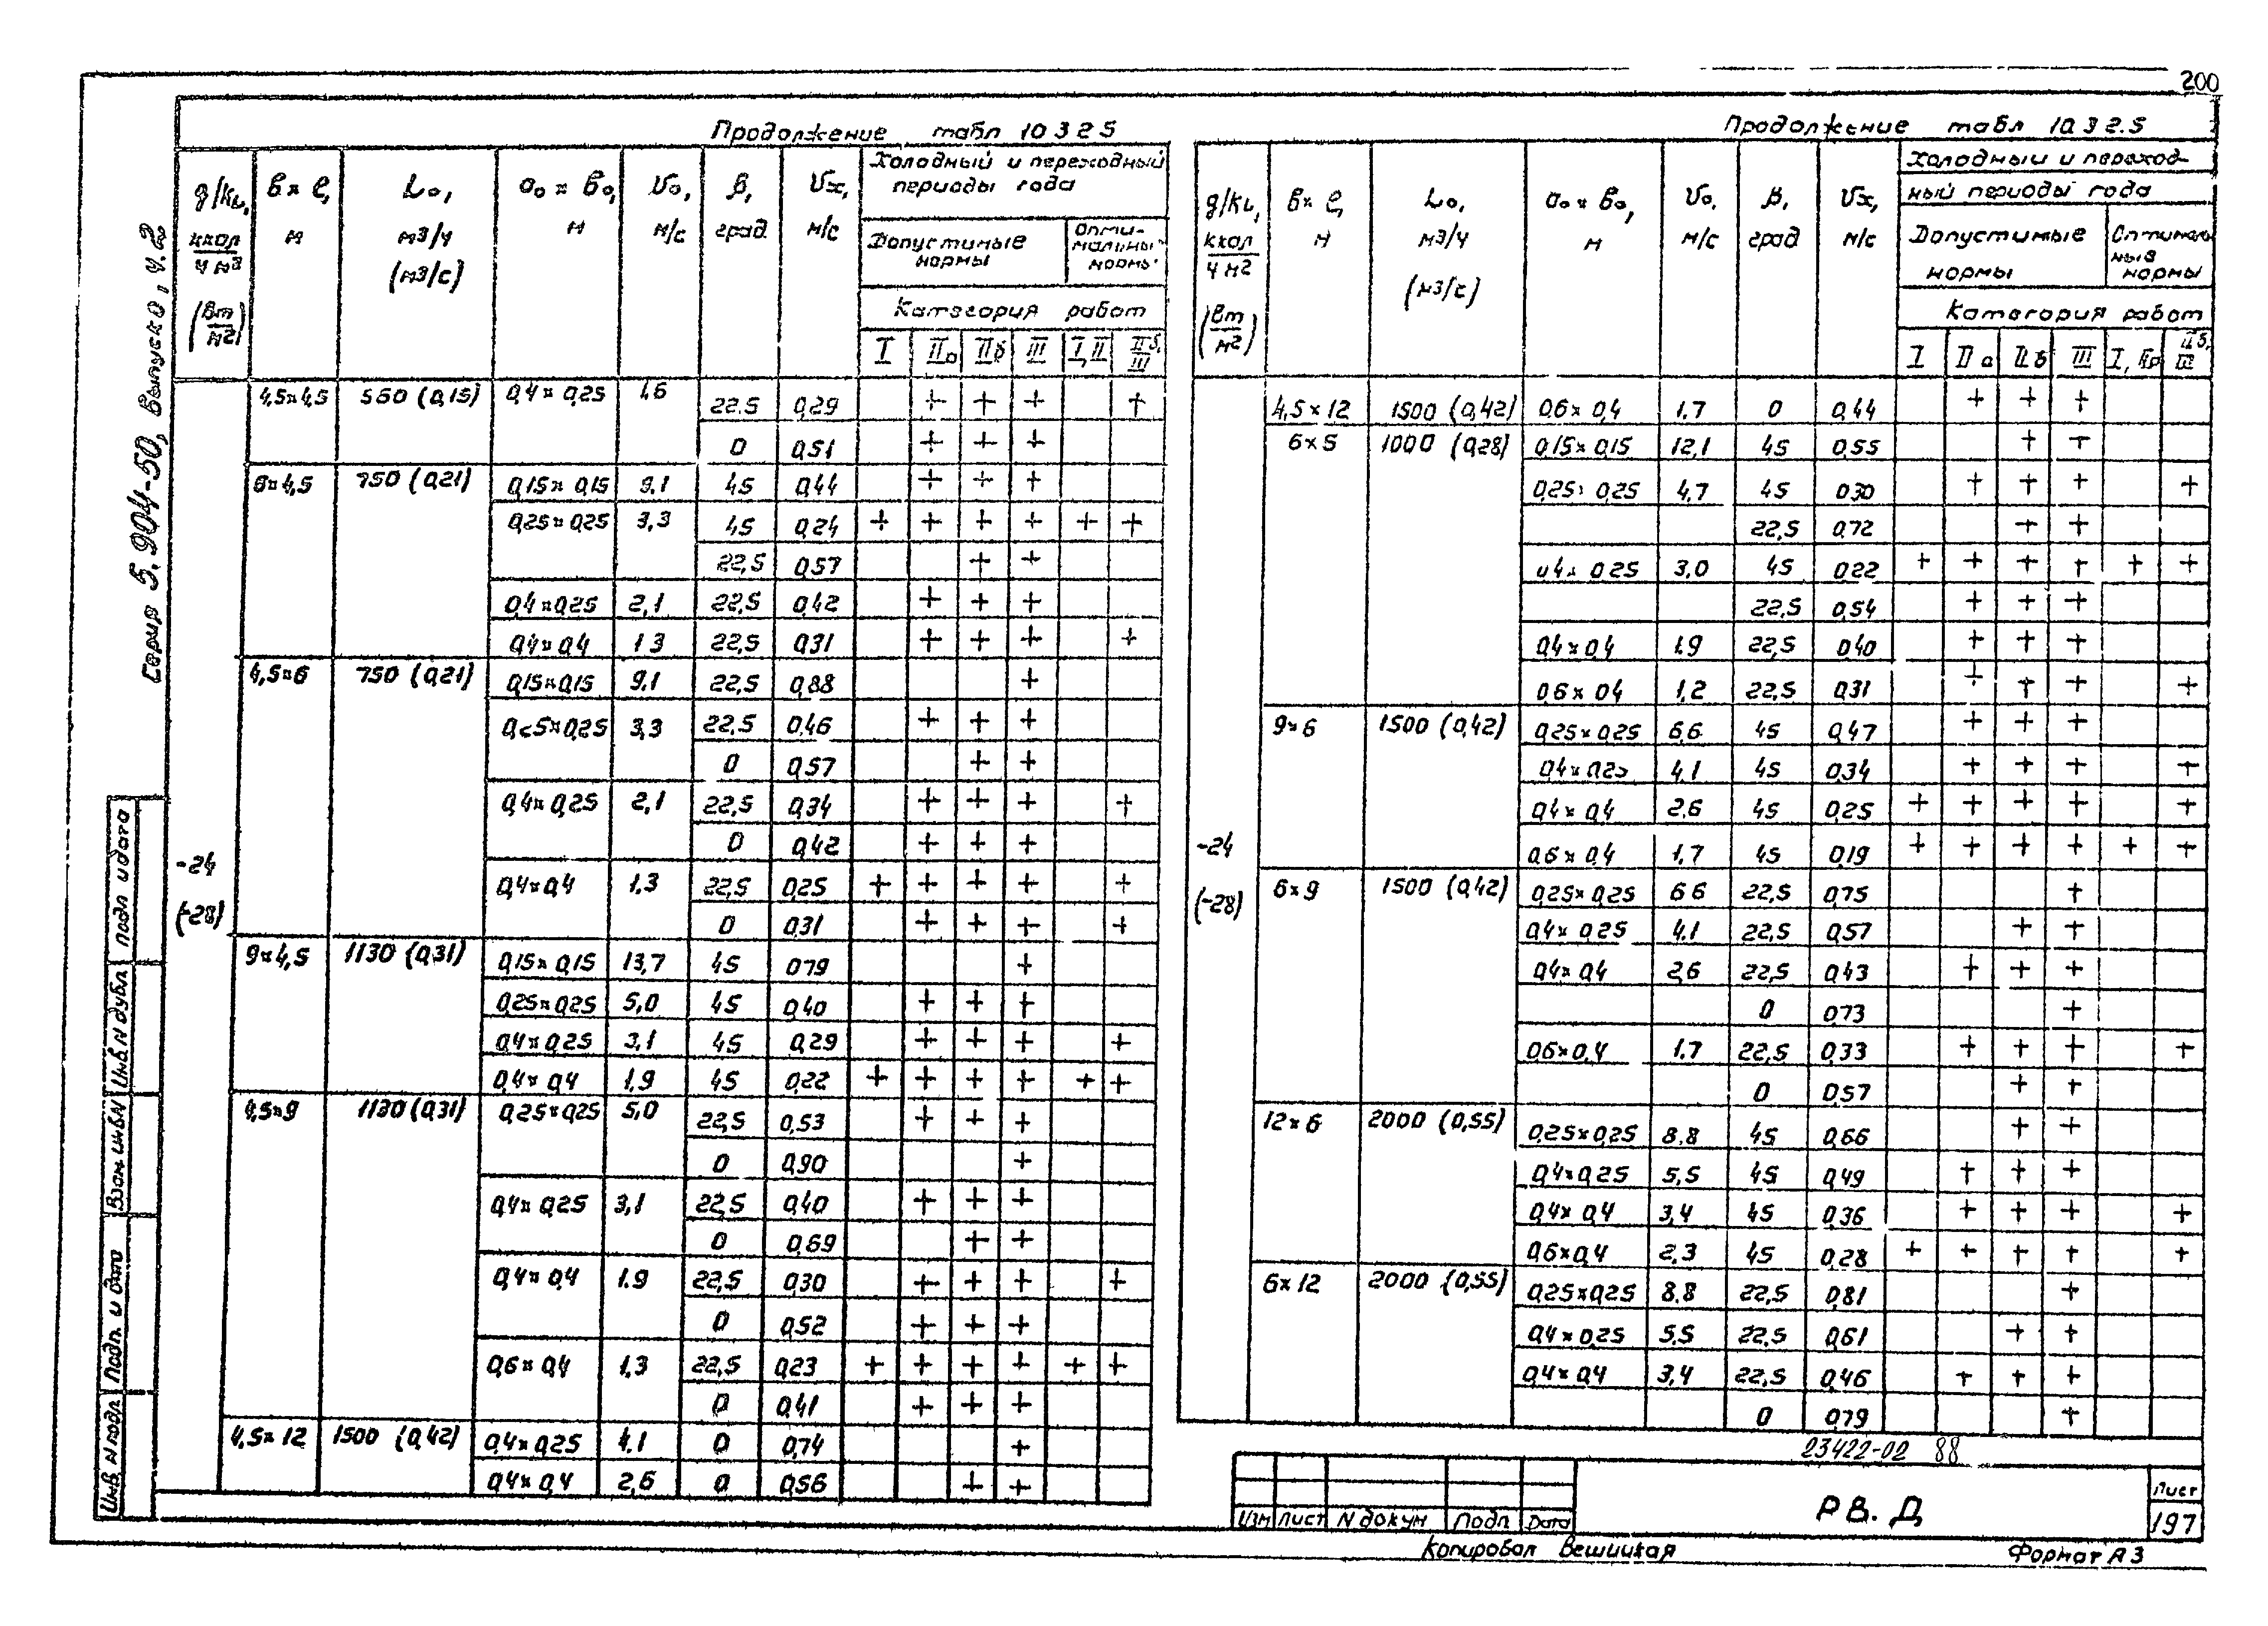 200
Серия 5.904-50, Выпуск 0, ч.2
Продолжение табл 10 3 2 5
g/kL, ккал/ч м² (Вт/м²) | в × ℓ, м | L₀, м3/ч (м3/с) | a₀ × b₀, м | v₀, м/с | β, град | vx, м/с | Холодный и переходный периоды года
Допустимые нормы | Оптимальные нормы
Категория работ
I | IIa | IIб | III | I, II | IIб, III
-24 (-28)
4,5×4,5 | 560 (0,15) | 0,4×0,25 | 1,6 | 22.5 | 0,29 | | + | + | + | | +
0 | 0,51 | | + | + | + | |
6×4,5 | 750 (0,21) | 0,15×0,15 | 9.1 | 45 | 0,44 | | + | + | + | |
0,25×0,25 | 3,3 | 45 | 0,24 | + | + | + | + | + | +
22,5 | 0,57 | | | + | + | |
0,4×0,25 | 2,1 | 22,5 | 0,42 | | + | + | + | |
0,4×0,4 | 1 3 | 22,5 | 0,31 | | + | + | + | | +
4,5×6 | 750 (0,21) | 0,15×0,15 | 9,1 | 22,5 | 0,88 | | | | + | |
0,25×0,25 | 3,3 | 22,5 | 0,46 | | + | + | + | |
0 | 0,57 | | | + | + | |
0,4×0,25 | 2,1 | 22,5 | 0,34 | | + | + | + | | +
0 | 0,42 | | + | + | + | |
0,4×0,4 | 1,3 | 22,5 | 0,25 | + | + | + | + | | +
0 | 0,31 | | + | + | + | | +
9×4,5 | 1130 (0,31) | 0,15×0,15 | 13,7 | 45 | 0,79 | | | | + | |
0,25×0,25 | 5,0 | 45 | 0,40 | | + | + | + | |
0,4×0,25 | 3,1 | 45 | 0,29 | | + | + | + | | +
0,4×0,4 | 1,9 | 45 | 0,22 | + | + | + | + | + | +
4,5×9 | 1130 (0,31) | 0,25×0,25 | 5,0 | 22,5 | 0,53 | | + | + | + | |
0 | 0,90 | | | | + | |
0,4×0,25 | 3,1 | 22,5 | 0,40 | | + | + | + | |
0 | 0,69 | | | + | + | |
0,4×0,4 | 1.9 | 22,5 | 0,30 | | + | + | + | | +
0 | 0,52 | | + | + | + | |
0,6×0,4 | 1,3 | 22,5 | 0,23 | + | + | + | + | + | +
0 | 0,41 | | + | + | + | |
4,5×12 | 1500 (0,42) | 0,4×0,25 | 4,1 | 0 | 0,74 | | | | + | |
0,4×0,4 | 2,6 | 0 | 0,56 | | | + | + | |
Продолжение табл 10.3 2.5
g/kL, ккал/ч м² (Вт/м²) | в × ℓ, м | L₀, м3/ч (м3/с) | a₀ × b₀, м | v₀, м/с | β, град | vx, м/с | Холодный и переходный периоды года
Допустимые нормы | Оптимальные нормы
Категория работ
I | IIa | IIб | III | I, IIa | IIб, III
-24 (-28)
4,5×12 | 1500 (0,42) | 0,6×0,4 | 1.7 | 0 | 0,44 | | + | + | + | |
6×5 | 1000 (0,28) | 0,15×0,15 | 12,1 | 45 | 0,55 | | | + | + | |
0,25×0,25 | 4,7 | 45 | 0,30 | | + | + | + | | +
22,5 | 0,72 | | | + | + | |
0,4×0,25 | 3,0 | 45 | 0,22 | + | + | + | + | + | +
22,5 | 0,54 | | + | + | + | |
0,4×0,4 | 1.9 | 22,5 | 0,40 | | + | + | + | |
0,6×0,4 | 1,2 | 22,5 | 0,31 | | + | + | + | | +
9×6 | 1500 (0,42) | 0,25×0,25 | 6,6 | 45 | 0,47 | | + | + | + | |
0,4×0,25 | 4,1 | 45 | 0,34 | | + | + | + | | +
0,4×0,4 | 2,6 | 45 | 0,25 | + | + | + | + | | +
0,6×0,4 | 1,7 | 45 | 0,19 | + | + | + | + | + | +
6×9 | 1500 (0,42) | 0,25×0,25 | 6 6 | 22,5 | 0,75 | | | | + | |
0,4×0,25 | 4,1 | 22,5 | 0,57 | | | + | + | |
0,4×0,4 | 2,6 | 22,5 | 0,43 | | + | + | + | |
0 | 0,73 | | | | + | |
0,6×0,4 | 1.7 | 22,5 | 0,33 | | + | + | + | | +
0 | 0,57 | | | + | + | |
12×6 | 2000 (0,55) | 0,25×0,25 | 8,8 | 45 | 0,66 | | | + | + | |
0,4×0,25 | 5,5 | 45 | 0,49 | | + | + | + | |
0,4×0,4 | 3,4 | 45 | 0,36 | | + | + | + | | +
0,6×0,4 | 2,3 | 45 | 0,28 | + | + | + | + | | +
6×12 | 2000 (0,55) | 0,25×0,25 | 8.8 | 22,5 | 0,81 | | | | + | |
0,4×0,25 | 5,5 | 22,5 | 0,61 | | | + | + | |
0,4×0,4 | 3,4 | 22,5 | 0,46 | | + | + | + | |
0 | 0,79 | | | | + | |
23422-02 88
Изм Лист N докум Подп Дата
РВ. Д
Лист
197
Копировал Вешицкая
Формат А3
Инв. N подл Подп. и дата Взам инв N Инв. N дубл Подп и дата